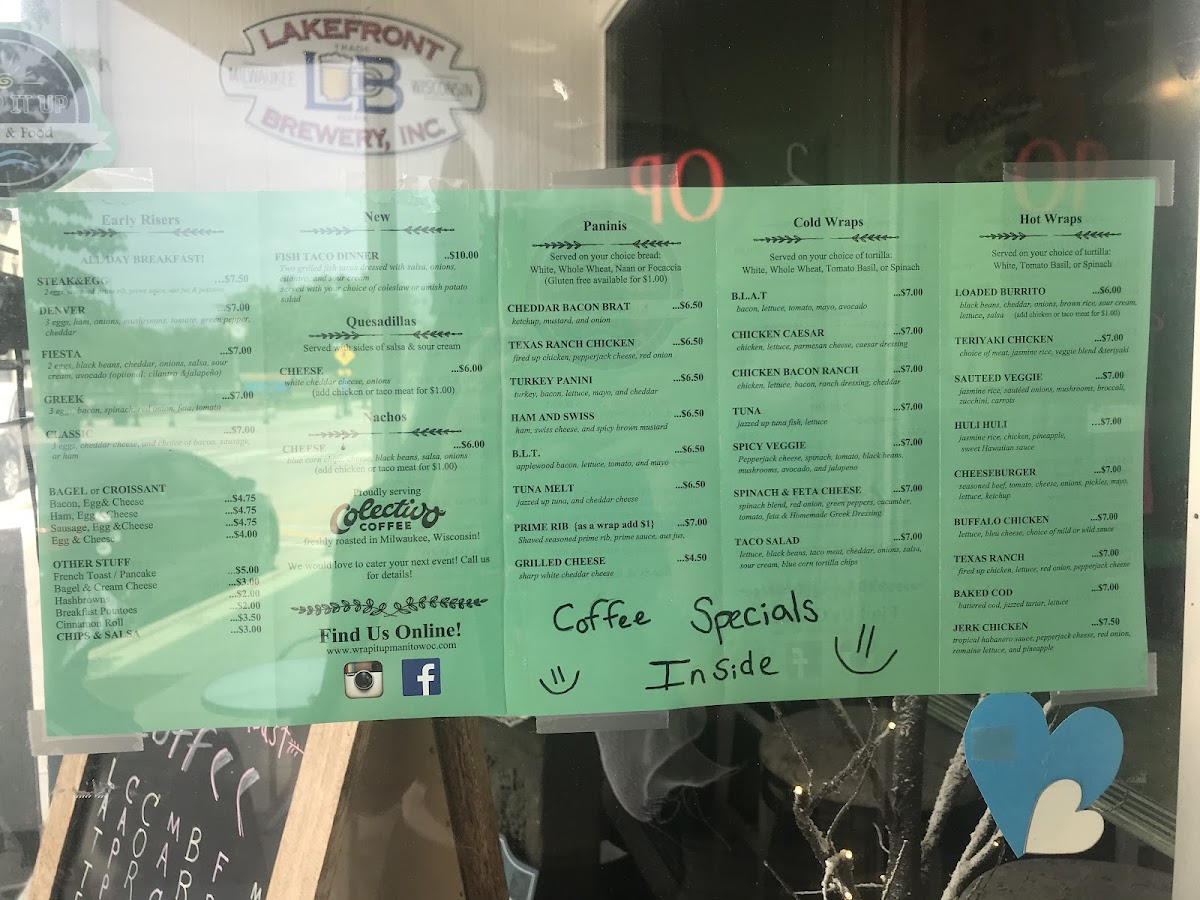 LAKEFRONT
TRADE
MILWAUKEE LB WISCONSIN
BREWERY, INC.
IT UP
& Food
OP
Early Risers
ALL DAY BREAKFAST!
STEAK&EGG ...$7.50
DENVER ...$7.00
3 eggs, ham, onions, mushrooms, tomato, green pepper,
cheddar
FIESTA ...$7.00
2 eggs, black beans, cheddar, onions, salsa, sour
cream, avocado (optional: cilantro &jalapeño)
GREEK ...$7.00
3 eggs, bacon, spinach, red onion, feta, tomato
CLASSIC ...$7.00
3 eggs, cheddar cheese, and choice of bacon, sausage,
or ham
BAGEL or CROISSANT
Bacon, Egg& Cheese ...$4.75
Ham, Egg & Cheese ...$4.75
Sausage, Egg &Cheese ...$4.75
Egg & Cheese ...$4.00
OTHER STUFF
French Toast / Pancake ...$5.00
Bagel & Cream Cheese ...$3.00
Hashbrowns ...$2.00
Breakfast Potatoes ...$2.00
Cinnamon Roll ...$3.50
CHIPS & SALSA ...$3.00
New
FISH TACO DINNER ..$10.00
Two grilled fish tacos dressed with salsa, onions,
cilantro, and sour cream
served with your choice of coleslaw or amish potato
salad
Quesadillas
Served with sides of salsa & sour cream
CHEESE ...$6.00
white cheddar cheese, onions
(add chicken or taco meat for $1.00)
Nachos
CHEESE ...$6.00
blue corn chips, cheese, black beans, salsa, onions
(add chicken or taco meat for $1.00)
Proudly serving
Colectivo
COFFEE
freshly roasted in Milwaukee, Wisconsin!
We would love to cater your next event! Call us
for details!
Find Us Online!
www.wrapitupmanitowoc.com
f
Paninis
Served on your choice bread:
White, Whole Wheat, Naan or Focaccia
(Gluten free available for $1.00)
CHEDDAR BACON BRAT ...$6.50
ketchup, mustard, and onion
TEXAS RANCH CHICKEN ...$6.50
fired up chicken, pepperjack cheese, red onion
TURKEY PANINI ...$6.50
turkey, bacon, lettuce, mayo, and cheddar
HAM AND SWISS ...$6.50
ham, swiss cheese, and spicy brown mustard
B.L.T. ...$6.50
applewood bacon, lettuce, tomato, and mayo
TUNA MELT ...$6.50
jazzed up tuna, and cheddar cheese
PRIME RIB {as a wrap add $1} ...$7.00
Shaved seasoned prime rib, prime sauce, aus jus,
GRILLED CHEESE ...$4.50
sharp white cheddar cheese
Cold Wraps
Served on your choice of tortilla:
White, Whole Wheat, Tomato Basil, or Spinach
B.L.A.T ...$7.00
bacon, lettuce, tomato, mayo, avocado
CHICKEN CAESAR ...$7.00
chicken, lettuce, parmesan cheese, caesar dressing
CHICKEN BACON RANCH ...$7.00
chicken, lettuce, bacon, ranch dressing, cheddar
TUNA ...$7.00
jazzed up tuna fish, lettuce
SPICY VEGGIE ...$7.00
Pepperjack cheese, spinach, tomato, black beans,
mushrooms, avocado, and jalapeno
SPINACH & FETA CHEESE ...$7.00
spinach blend, red onion, green peppers, cucumber,
tomato, feta & Homemade Greek Dressing
TACO SALAD ...$7.00
lettuce, black beans, taco meat, cheddar, onions, salsa,
sour cream, blue corn tortilla chips
Hot Wraps
Served on your choice of tortilla:
White, Tomato Basil, or Spinach
LOADED BURRITO ...$6.00
black beans, cheddar, onions, brown rice, sour cream,
lettuce, salsa (add chicken or taco meat for $1.00)
TERIYAKI CHICKEN ...$7.00
choice of meat, jasmine rice, veggie blend &teriyaki
SAUTEED VEGGIE ...$7.00
jasmine rice, sautéed onions, mushrooms, broccoli,
zucchini, carrots
HULI HULI ...$7.00
jasmine rice, chicken, pineapple,
sweet Hawaiian sauce
CHEESEBURGER ...$7.00
seasoned beef, tomato, cheese, onions, pickles, mayo,
lettuce, ketchup
BUFFALO CHICKEN ...$7.00
lettuce, bleu cheese, choice of mild or wild sauce
TEXAS RANCH ...$7.00
fired up chicken, lettuce, red onion, pepperjack cheese
BAKED COD ...$7.00
battered cod, jazzed tartar, lettuce
JERK CHICKEN ...$7.50
tropical habanero sauce, pepperjack cheese, red onion,
romaine lettuce, and pineapple
Coffee Specials
Inside